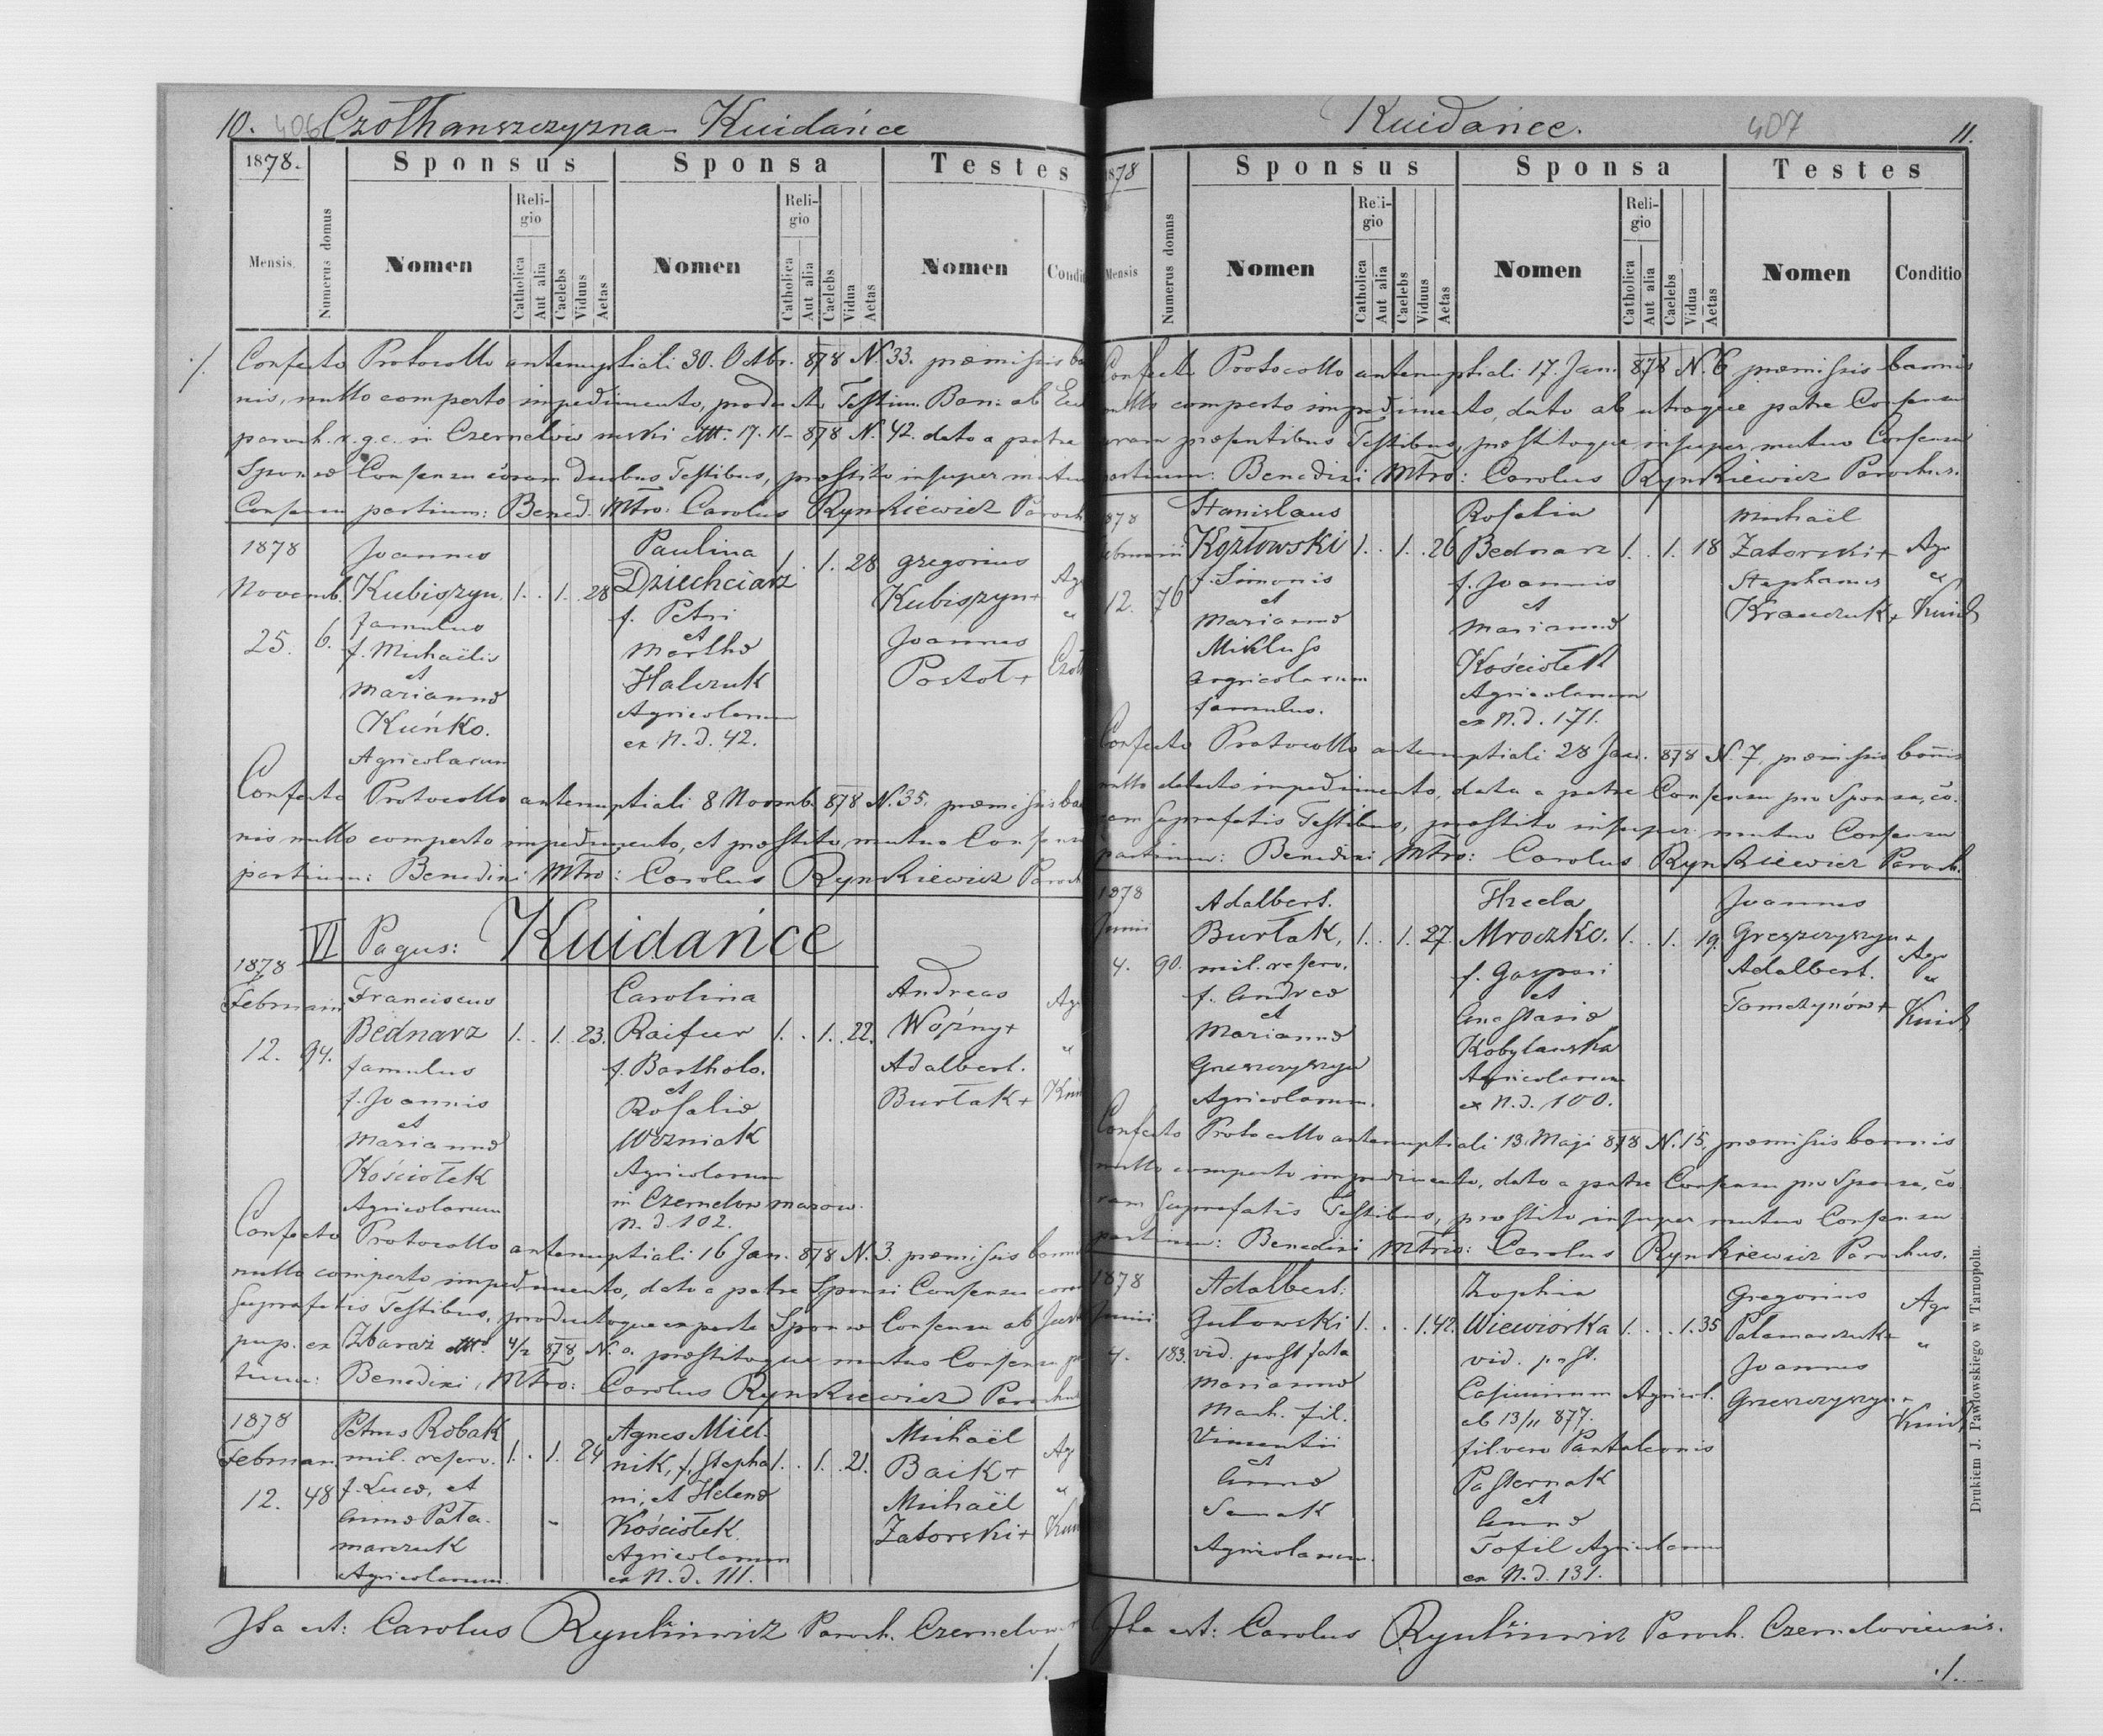 10. 406 Czołhanszczyzna - Kuidańce
1878.
Sponsus
Sponsa
Testes
Mensis
Numerus domus
Nomen
Religio
Catholica
Aut alia
Caelebs
Viduus
Aetas
Nomen
Religio
Catholica
Aut alia
Caelebs
Vidua
Aetas
Nomen
Condi
Confecto Protocollo antenuptiali 30. Octbr. 878 N. 33. præmissis ba
nis, nullo comperto impedimento, producto Testim. Ban: ab
paroch. r. g. c. in Czernelów ruski 17. 11 - 878 N. 42. dato a patre
Sponsæ Consensu coram duobus Testibus, præstito insuper mutuo
Consensu partium: Bened. Mtro: Carolus Rynkiewicz Paroch
1878
Novemb.
25.
6.
Joannes
Kubiszyn.
famulus
f. Michaëlis
et
Mariannæ
Kuńko.
Agricolarum
1. . 1. . 28
Paulina
Dziechciarz
f. Petri
et
Marthæ
Halczuk
Agricolarum
ex N. d. 42.
1. . 1. 28
Gregorius
Kubiszyn +
Joannes
Postoł +
Ag
"
Czoł
Confecto Protocollo antenuptiali 8 Novemb. 878 N. 35. præmissis ba
nis nullo comperto impedimento, et præstito mutuo Consensu
partium: Benedixi Mtro: Carolus Rynkiewicz Paroch
VI Pagus: Kuidańce
1878
Februarii
12.
94.
Franciscus
Bednarz
famulus
f. Joannis
et
Mariannæ
Kościołek
Agricolarum
1. . 1. . 23.
Carolina
Raifur
f. Bartholo.
et
Rosaliæ
Woźniak
Agricolarum
in Czernelow mazow.
N. d. 102.
1. . 1. . 22.
Andreas
Woźny +
Adalbert.
Burłak +
Ag
"
Kui
Confecto Protocollo antenuptiali 16 Jan. 878 N. 3. præmissis bannis
nullo comperto impedimento, dato a patre Sponsi Consensu coram
suprafatis Testibus, productoque ex parte Sponsæ Consensu ab
pup. ex Zbaraż 4/2 878 N. o. præstitoque mutuo Consensu
tium: Benedixi, Mtro: Carolus Rynkiewicz Parochus
1878
Februar
12.
48
Petrus Robak
mil. reserv.
f. Lucæ, et
Annæ Pała-
marczuk
Agricolarum.
1. . 1. 24
Agnes Miel-
nik, f. Stepha
ni, et Helenæ
Kościołek.
Agricolarum
ex N. d. 111.
1. . 1. . 21.
Michaël
Baik +
Michaël
Zatorski +
Ag
"
Kui
Ita est: Carolus Rynkiewicz Paroch. Czernelow
./.
Kuidańce. 407 11.
1878
Sponsus
Sponsa
Testes
Mensis
Numerus domus
Nomen
Religio
Catholica
Aut alia
Caelebs
Viduus
Aetas
Nomen
Religio
Catholica
Aut alia
Caelebs
Vidua
Aetas
Nomen
Conditio
Confecto Protocollo antenuptiali 17. Jan. 878 N. 6 præmissis bannis
nullo comperto impedimento, dato ab utroque patre Consensu
coram præsentibus Testibus, præstitoque insuper mutuo Consensu
partium: Benedixi Mtro: Carolus Rynkiewicz Parochus.
878
Februarii
12.
76
Stanislaus
Kozłowski
f. Simonis
et
Mariannæ
Miklus
Agricolarum
famulus.
1. . 1. . 26
Rosalia
Bednarz
f. Joannis
et
Mariannæ
Kościołek
Agricolarum
ex N. d. 171.
1. . 1. 18
Michaël
Zatorski +
Stephanus
Krawczuk +
Agr
"
Kuid
Confecto Protocollo antenuptiali 28 Jan. 878 N. 7, præmissis bannis
nullo detecto impedimento, dato a patre Consensu pro Sponsa, co-
ram suprafatis Testibus, præstito insuper mutuo Consensu
partium: Benedixi Mtro: Carolus Rynkiewicz Paroch.
1878
Junii
4.
90.
Adalbert.
Burłak,
mil. reserv.
f. Andreæ
et
Mariannæ
Greszczyszyn
Agricolarum.
1. . 1. 27
Thecla
Mroczko.
f. Gaspari
et
Anastasiæ
Kobylańska
Agricolarum
ex N. d. 100.
1. . 1. 19.
Joannes
Greszczyszyn +
Adalbert.
Tomczynów +
Agr
"
Kuid
Confecto Protocollo antenuptiali 13. Maji 878 N. 15. præmissis bannis
nullo comperto impedimento, dato a patre Consensu pro Sponsa, co
ram suprafatis Testibus, præstito insuper mutuo Consensu
partium: Benedixi Mtro: Carolus Rynkiewicz Parochus.
1878
Junii
4.
183.
Adalbert.
Gutowski
vid. post fata
Mariannæ
Mach. fil.
Vincentii
et
Annæ
Senak
Agricolarum.
1. . . 1. 42.
Zophia
Wiewiórka
vid. post.
Casimirum Agricol.
ab 13/11 877.
fil. vero Pantaleonis
Pasternak
et
Annæ
Tofil Agricolarum
ex N. d. 131.
1. . . 1. 35
Gregorius
Pałamarczuk +
Joannes
Grzeszczyszyn +
Agr
"
Kuid
Ita est: Carolus Rynkiewicz Paroch. Czerneloviensis.
./.
Drukiem J. Pawłowskiego w Tarnopolu.